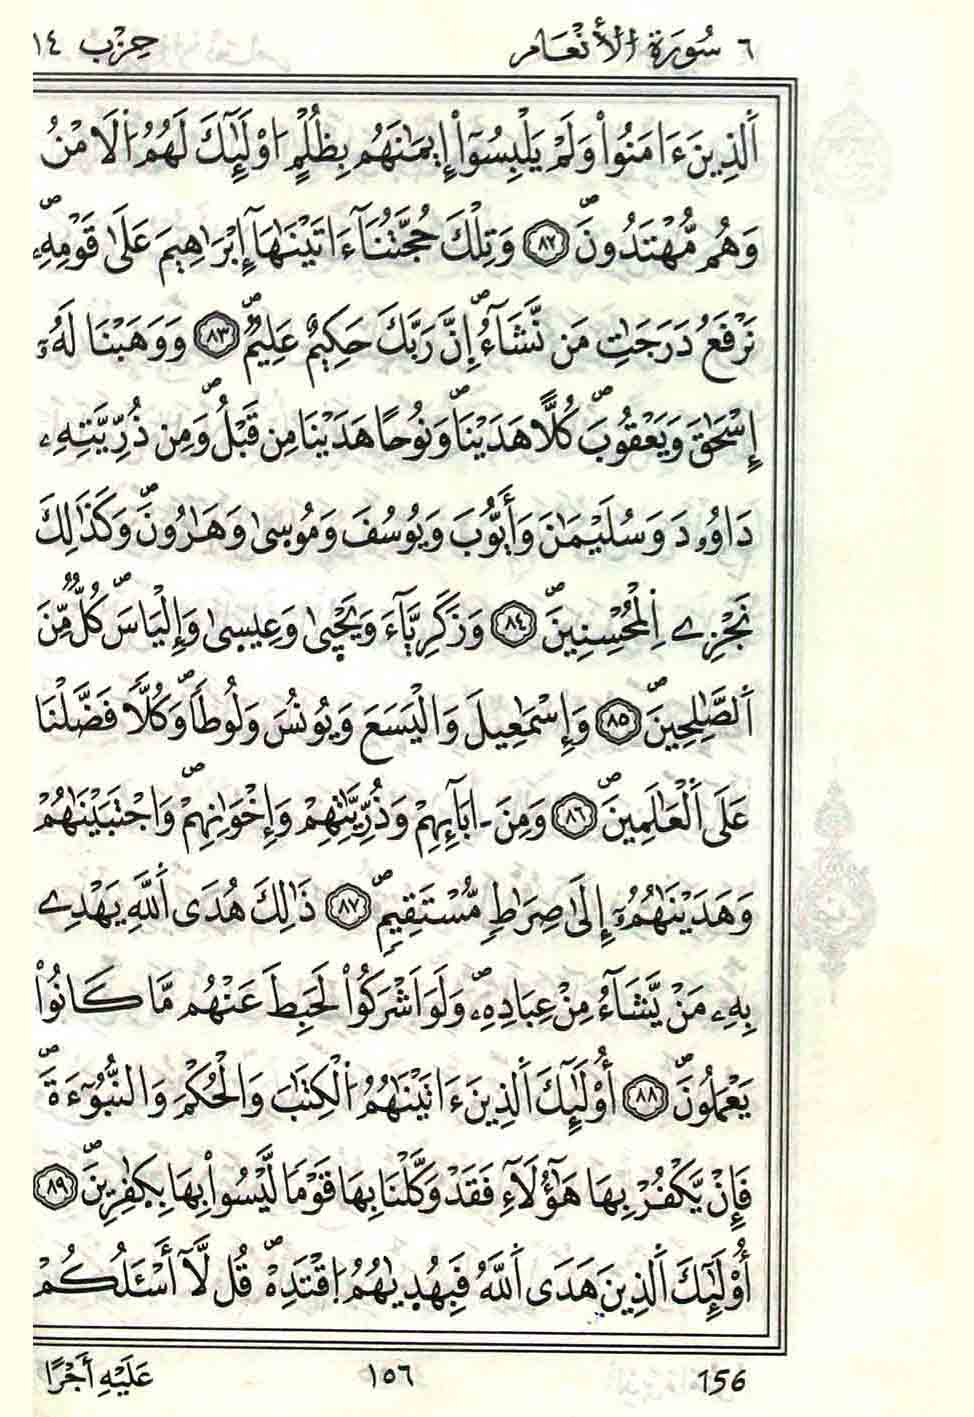 ٦ سُورَةُ الْأَنْعَامِ حِزْب ١٤
اَ۬لذِينَ ءَامَنُواْ وَلَمْ يَلْبِسُوٓاْ إِيمَٰنَهُم بِظُلْمٍ ا۟وْلَٰٓئِكَ لَهُمُ اُ۬لَامْنُ
وَهُم مُّهْتَدُونَۖ ٨٢ وَتِلْكَ حُجَّتُنَآ ءَاتَيْنَٰهَآ إِبْرَٰهِيمَ عَلَىٰ قَوْمِهِۦۖ
نَرْفَعُ دَرَجَٰتِ مَن نَّشَآءُۖ إِنَّ رَبَّكَ حَكِيمٌ عَلِيمٌۖ ٨٣ وَوَهَبْنَا لَهُۥٓ
إِسْحَٰقَ وَيَعْقُوبَۖ كُلّاً هَدَيْنَاۖ وَنُوحاً هَدَيْنَا مِن قَبْلُۖ وَمِن ذُرِّيَّتِهِۦ
دَاوُۥدَ وَسُلَيْمَٰنَ وَأَيُّوبَ وَيُوسُفَ وَمُوسىٰ وَهَٰرُونَۖ وَكَذَٰلِكَ
نَجْزِے اِ۬لْمُحْسِنِينَۖ ٨٤ وَزَكَرِيَّآءَ وَيَحْيىٰ وَعِيسىٰ وَإِلْيَاسَۖ كُلٌّ مِّنَ
اَ۬لصَّٰلِحِينَۖ ٨٥ وَإِسْمَٰعِيلَ وَالْيَسَعَ وَيُونُسَ وَلُوطاًۖ وَكُلّاً فَضَّلْنَا
عَلَى اَ۬لْعَٰلَمِينَۖ ٨٦ وَمِنَ ـ ابَآئِهِمْ وَذُرِّيَّٰتِهِمْ وَإِخْوَٰنِهِمْۖ وَاجْتَبَيْنَٰهُمْ
وَهَدَيْنَٰهُمُۥٓ إِلَىٰ صِرَٰطٍ مُّسْتَقِيمٍۖ ٨٧ ذَٰلِكَ هُدَى اَ۬للَّهِ يَهْدِے
بِهِۦ مَنْ يَّشَآءُ مِنْ عِبَادِهِۦۖ وَلَوَ اَشْرَكُواْ لَحَبِطَ عَنْهُم مَّا كَانُواْ
يَعْمَلُونَۖ ٨٨ أُوْلَٰٓئِكَ اَ۬لذِينَ ءَاتَيْنَٰهُمُ اُ۬لْكِتَٰبَ وَالْحُكْمَ وَالنُّبُوٓءَةَۖ
فَإِنْ يَّكْفُرْ بِهَا هَٰٓؤُلَآءِ فَقَدْ وَكَّلْنَا بِهَا قَوْماً لَّيْسُواْ بِهَا بِكَٰفِرِينَۖ ٨٩
أُوْلَٰٓئِكَ اَ۬لذِينَ هَدَى اَ۬للَّهُ فَبِهُد۪يٰهُمُ اُ۪قْتَدِهْۖ قُل لَّآ أَسْـَٔلُكُمْ
عَلَيْهِ أَجْرًا ١٥٦ 156